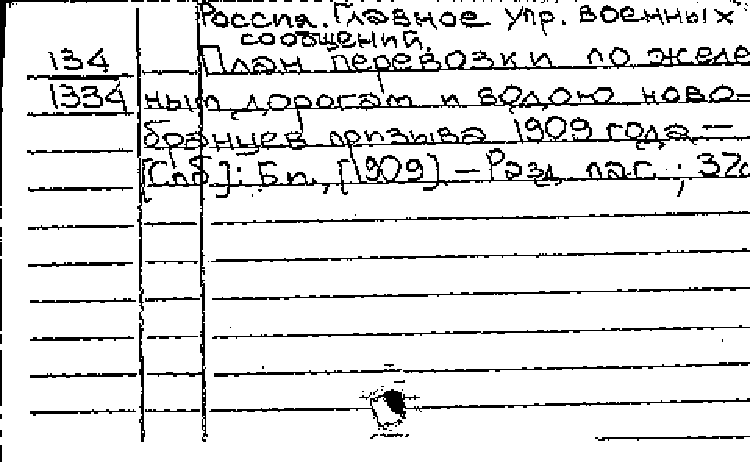 Россия. Главное упр. военных
сообщений.
134 План перевозки по желе
1334 ным дорогам и водою ново-
бранцев призыва 1909 года —
[Спб]: Б.п., [1909] – Разд. паг.; 32с